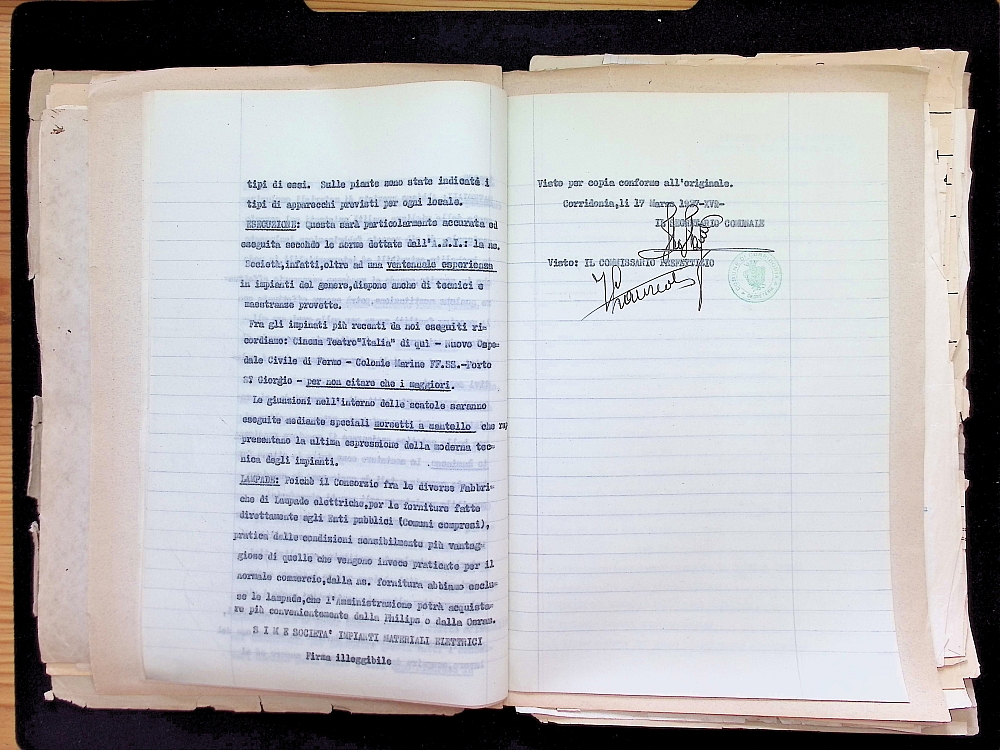 tipi di essi. Sulle piante sono state indicate i
tipi di apparecchi previsti per ogni locale.
ESECUZIONE: Questa sarà particolarmente accurata ed
eseguita secondo le norme dettate dall'A.E.I.: la ns.
Società,infatti,oltre ad una ventennale esperienza
in impianti del genere,dispone anche di tecnici e
maestranze provette.
Fra gli impinati più recenti da noi eseguiti ri-
cordiamo: Cinema Teatro"Italia" di quì - Nuovo Ospe-
dale Civile di Fermo - Colonie Marine FF.SS.-Porto
S? Giorgio - per non citare che i maggiori.
Le giunzioni nell'interno delle scatole saranno
eseguite mediante speciali morsetti a mantello che rap
presentano la ultima espressione della moderna tec-
nica degli impianti.
LAMPADE: Poichè il Consorzio fra le diverse Fabbri-
che di Lampade elettriche,per le forniture fatte
direttamente agli Enti pubblici (Comuni compresi),
pratica delle condizioni sensibilmente più vantag-
giose di quelle che vengono invece praticate per il
normale commercio,dalla ns. fornitura abbiamo esclu-
se le lampade,che l'Amministrazione potrà acquista-
re più convenientemente dalla Philips o dalla Osram.
S I M E SOCIETA' IMPIANTI MATERIALI ELETTRICI
Firma illeggibile
Visto per copia conforme all'originale.
Corridonia,li 17 Marzo 1937-XV°-
IL SEGRETARIO COMUNALE
Visto: IL COMMISSARIO PREFETTIZIO